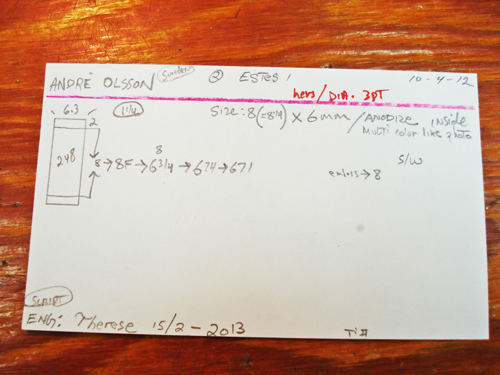 ANDRÉ OLSSON Sweden ② ESTES 1 10-4-12
hers/DIA. 3PT
6.3 1 1/4 Size: 8 (=8 1/4) X 6mm / ANODIZE INSIDE
2 Multi color like photo
248 8 → 8F → 63/4 → 674 → 671
8
S/W
emboss → 8
SCRIPT
ENG: Therese 15/2 - 2013
Ti II